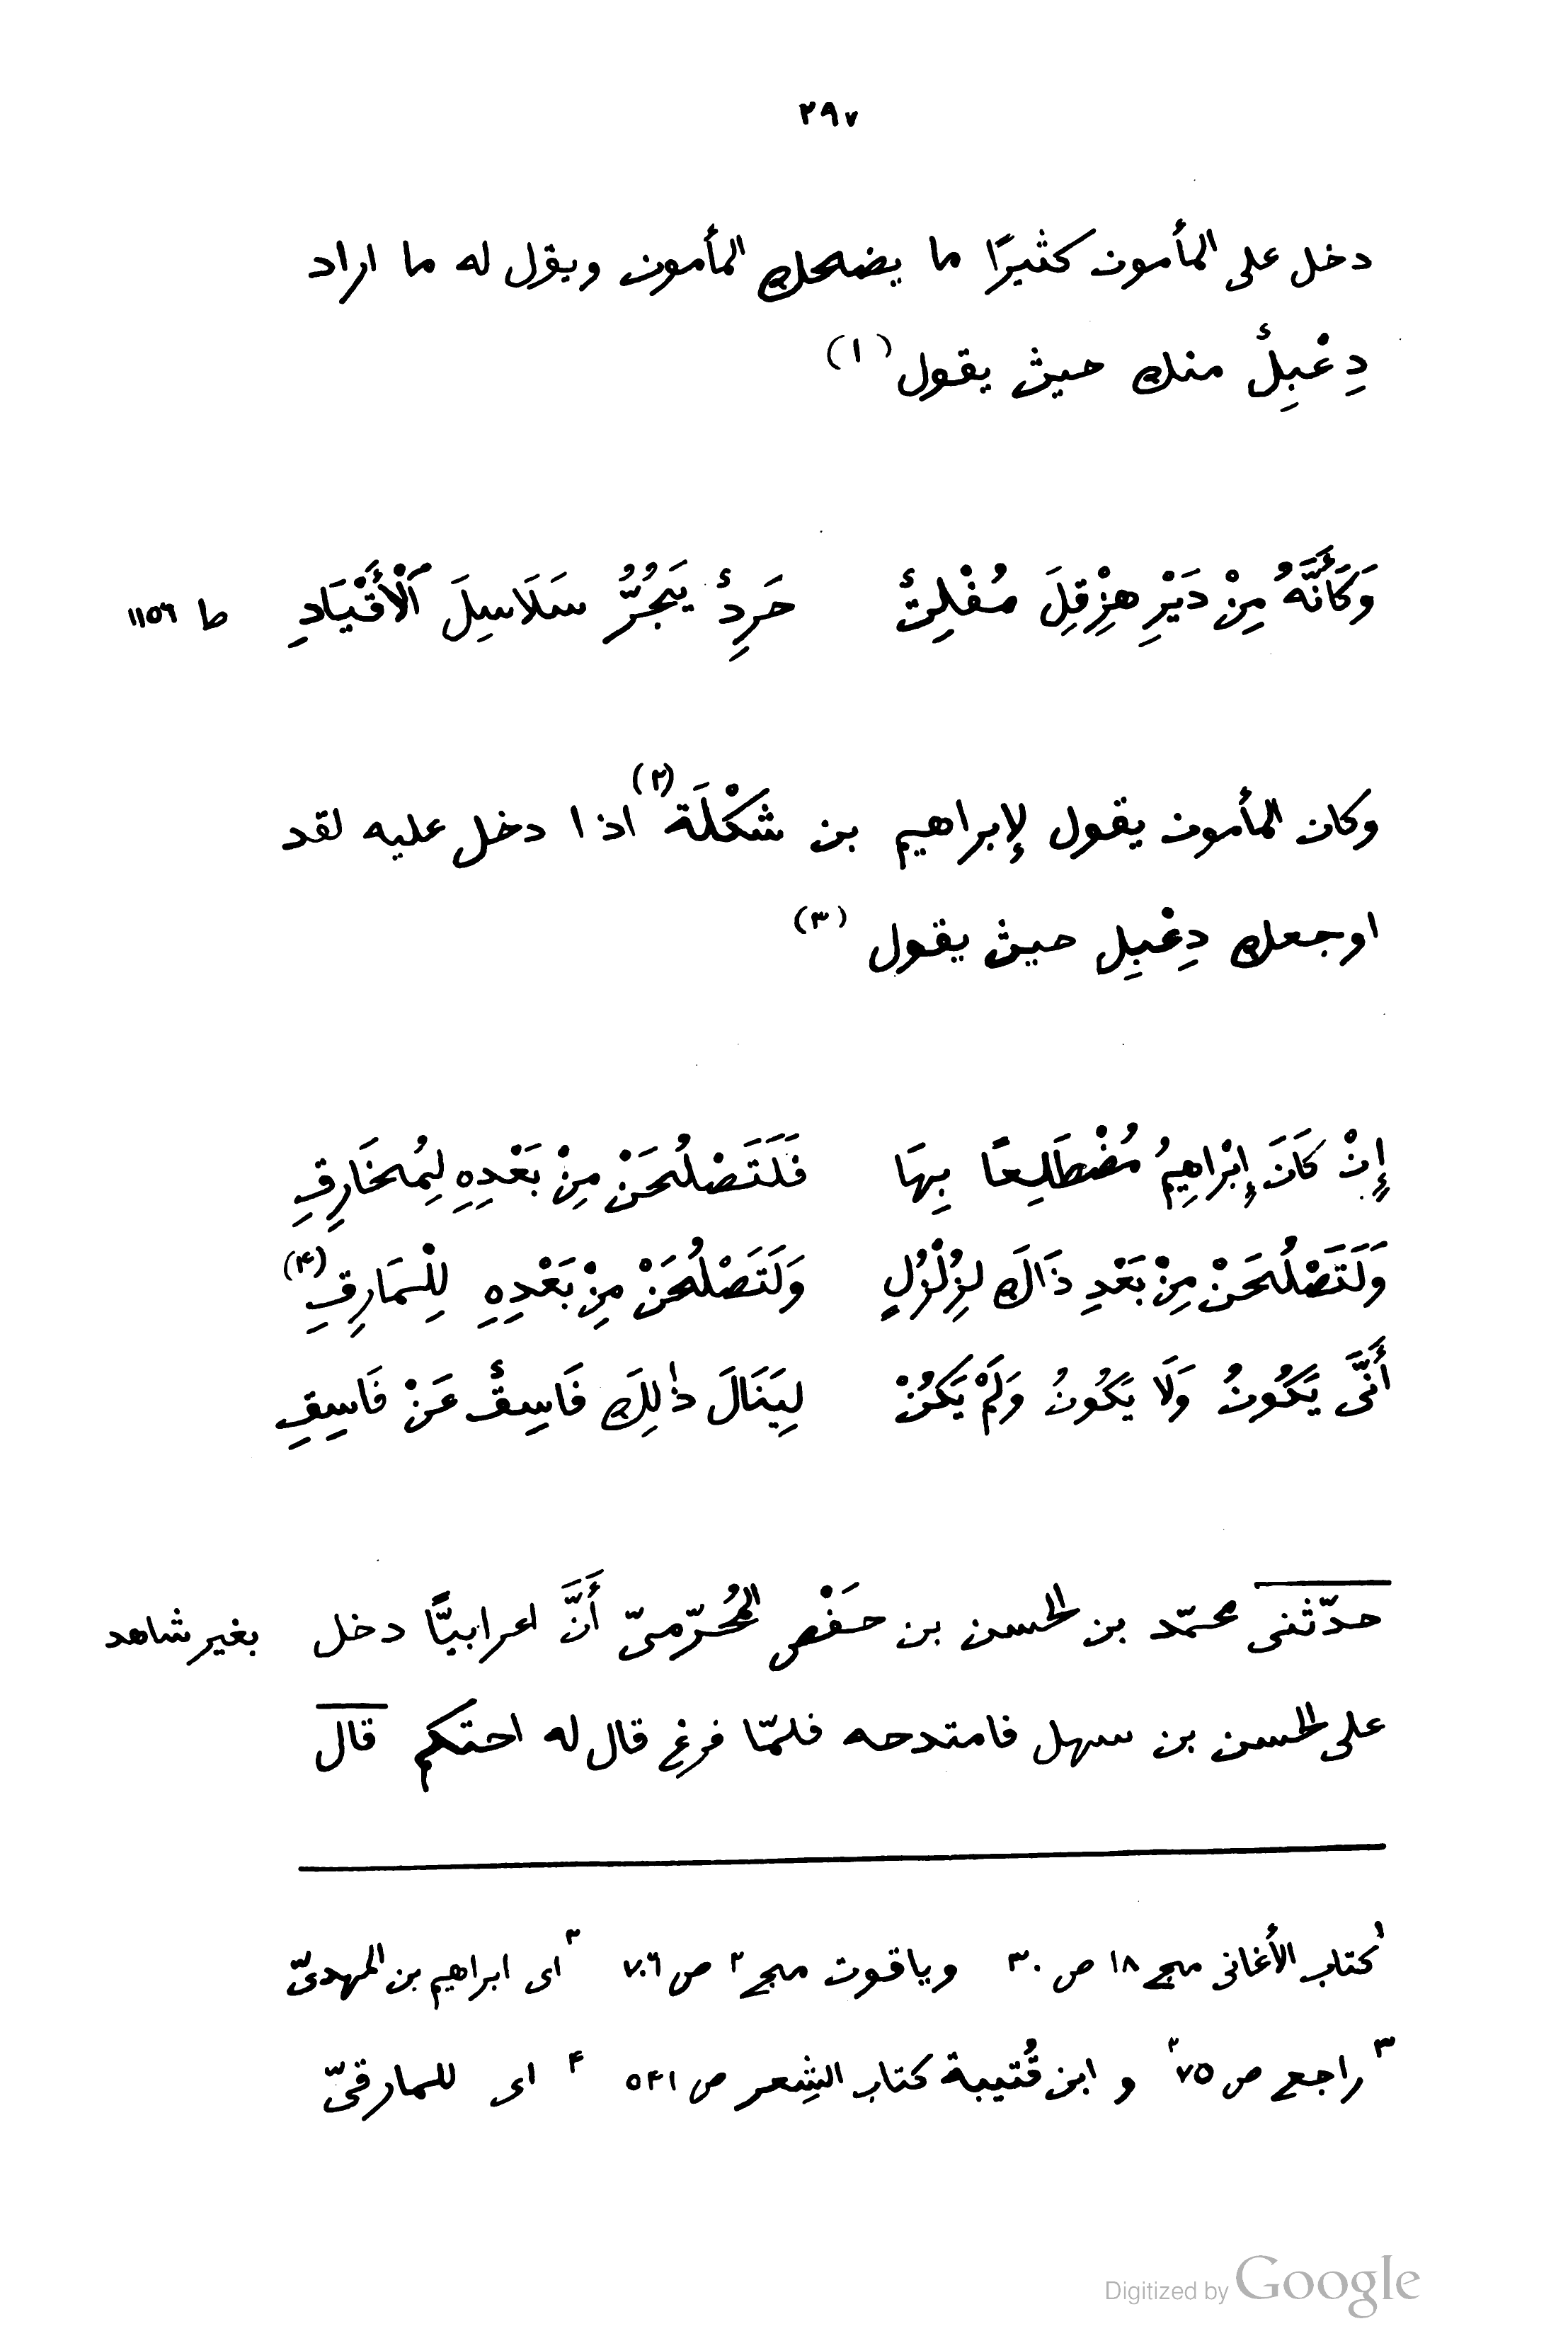 ٢٩٧
دخل على المأمون كثيرًا ما يضحك المأمون ويقول له ما اراد
دِعْبِلٌ منك حيث يقول (١)
وَكَأَنَّهُ مِنْ دَيْرِ هِزْقِلَ مُفْلِتٌ حَرِدٌ يَجُرُّ سَلَاسِلَ ٱلْأَقْيَادِ ط ١١٥٦
وكان المأمون يقول لإبراهيم بن شَكْلَة (٢) اذا دخل عليه لقد
اوجعك دِعْبِل حيث يقول (٣)
إِنْ كَانَ إِبْرَاهِيمُ مُضْطَلِعًا بِهَا فَلَتَصْلُحَنْ مِنْ بَعْدِهِ لِمُخَارِقِ
وَلَتَصْلُحَنْ مِنْ بَعْدِ ذَاكَ لِزُلْزُلٍ وَلَتَصْلُحَنْ مِنْ بَعْدِهِ لِلْمَارِقِ (۴)
أَنَّى يَكُونُ وَلَا يَكُونُ وَلَمْ يَكُنْ لِيَنَالَ ذٰلِكَ فَاسِقٌ عَنْ فَاسِقِ
حدّثنى محمّد بن الحسن بن حَفْص المُخَرّمىّ أَنَّ اعرابيًّا دخل بغير شاهد
على الحسن بن سهل فامتدحه فلمّا فرغ قال له احتكم قال
١ كتاب الأغانى مج ١٨ ص ٣٠ وياقوت مج ٢ ص ٧٠٦ ٢ اى ابراهيم بن المهدىّ
٣ راجع ص ٧٥ ٢ و ابن قُتيبة كتاب الشِعر ص ٥۴١ ۴ اى للمارقىّ
Digitized by Google